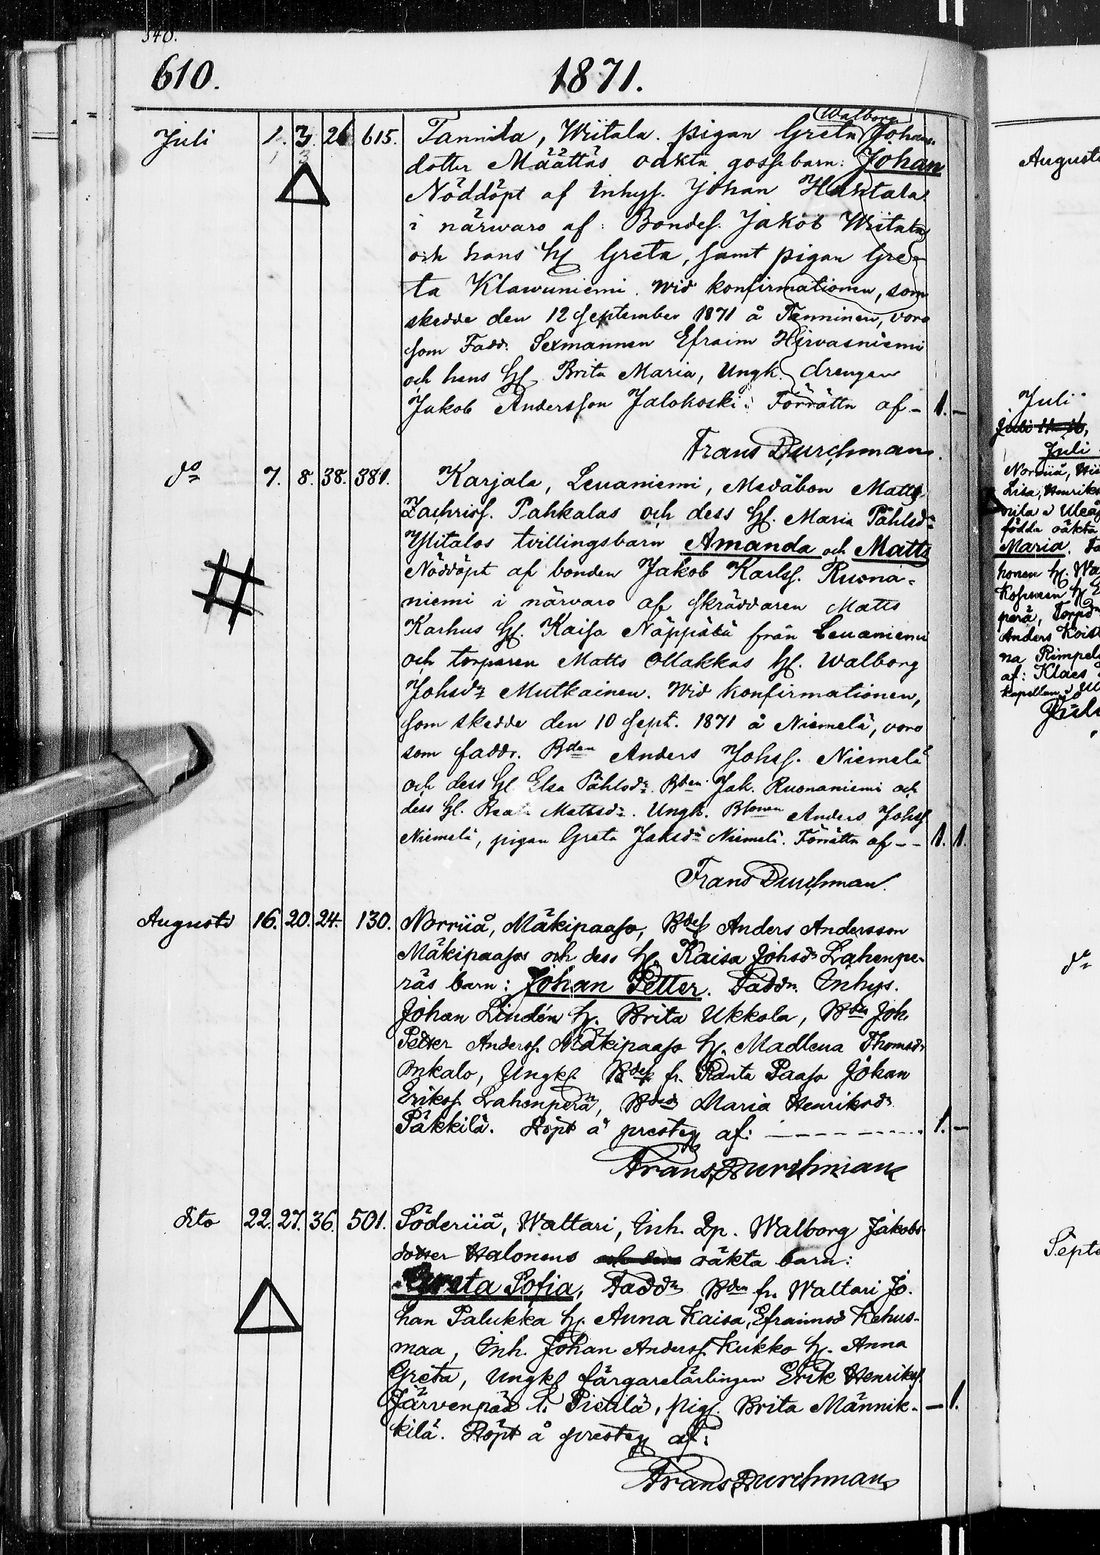 340.
610. 1871.
Juli 1. 3. 26 615. Tannila, Wiitala. pigan Greta Walborg Johans-
dotter Määttäs oäkta gossebarn: Johan
Nöddöpt af Inhys. Johan Huhtala
i närwaro af: Bondes. Jakob Wiitala
och hans H. Greta, samt pigan Gre-
ta Klawuniemi. Wid konfirmationen, som
skedde den 12 September 1871 å Tanninen, voro
som Fadd. Sexmannen Efraim Hirvasniemi
och hans H. Brita Maria, Ungk. drengen
Jakob Andersson Jalohoski: Förrätta af – 1. –
Frans Durchman.
do 7. 8. 38. 381. Karjala, Leuaniemi, Medåbon Matts
Zachriss. Pahkalas och dess H. Maria Påhlsdr
Ylitalos tvillingsbarn Amanda och Matts
Nöddöpt af bonden Jakob Karls. Ruona-
niemi i närvaro af skräddaren Matts
Karhus H. Kaisa Näppäbä från Leuaniemi
och torparen Matts Ollakkas H. Walborg
Johsdr Mutkainen. Wid konfirmationen,
som skedde den 10 Sept. 1871 å Niemelä, voro
som faddr. Bden Anders Johss. Niemelä
och dess H. Elsa Påhlsdr. Bden Jak. Ruonaniemi och
dess H. Mattsdr. Ungk. Anders Johss
Niemelä, pigan Greta Jaksdr Niemelä. Förrätta af – – 1. 1.
Frans Durchman.
Augusti 16. 20. 24. 130. Norriiå, Mäkipaaso, Bdes Anders Andersson
Mäkipaasos och dess H. Kaisa Johsdr Lahenpe-
räs barn: Johan Petter. Faddr. Inhys.
Johan Lindén H. Brita Ukkola, Bden Joh
Petter Anderss. Mäkipaaso H. Madlena Thomsdr
Inkala, Ungk: Bdes fr. Paaso Johan
Eriks. Lahenperä, Bdsdr Maria Henriksdr
Päkkilä. Döpt å presteg af: – 1. –
Frans Durchman
Dito 22. 27. 36. 501. Söderiiå, Waltari, Inh. Dr. Walborg Jakobs
dotter Halonens oäkta barn:
Greta Sofia, Faddr Bden fr. Waltari Jo-
han Palukka H. Anna Kaisa, Efraimsd Kehus-
maa, Inh. Johan Anderss. Kukko H. Anna
Greta, Ungk: färgarelärlingen Erik Henrikss
Järvenpää fr. Pietilä, pig. Brita Männik-
kilä. Döpt å presteg af: – 1.
Frans Durchman
Augusti
Juli
Juli
Lisa, Henriks
födda oäkta
Maria.
perä,
Anders
na
af: Klaes
Juli
dr
Septe